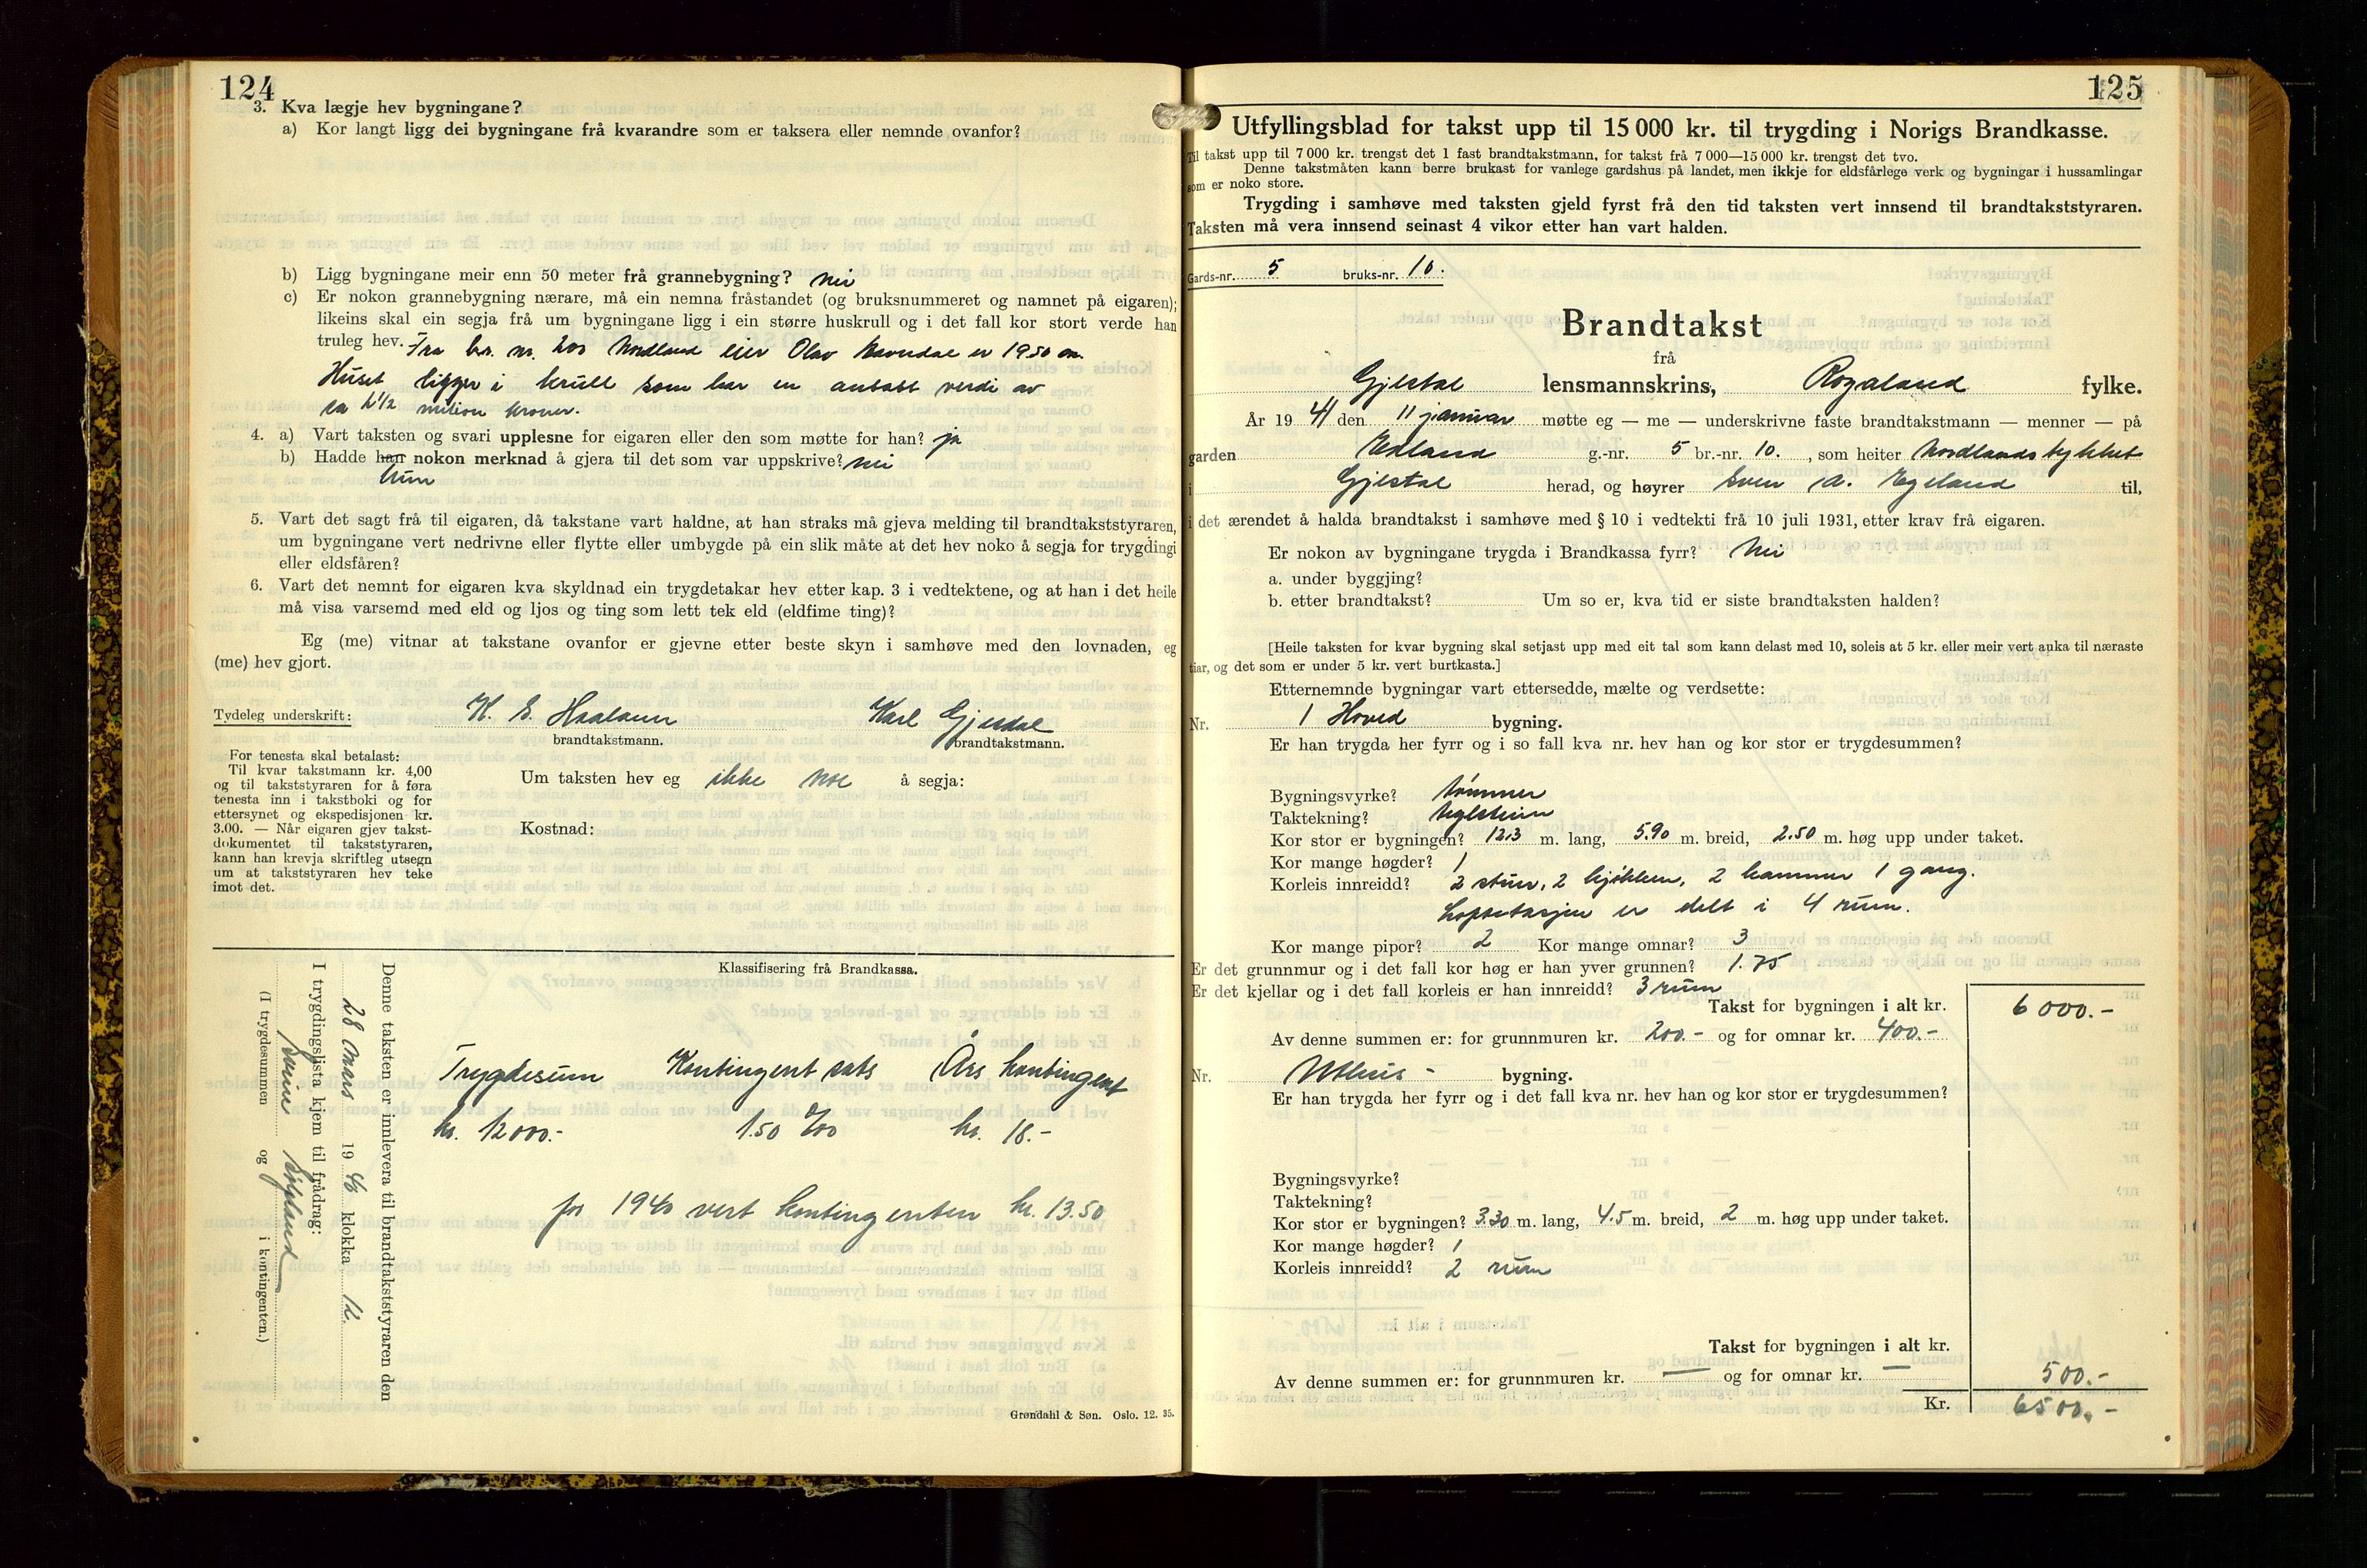 124
3. Kva lægje hev bygningane?
a) Kor langt ligg dei bygningane frå kvarandre som er taksera eller nemnde ovanfor?
b) Ligg bygningane meir enn 50 meter frå grannebygning? nei
c) Er nokon grannebygning nærare, må ein nemna fråstandet (og bruksnummeret og namnet på eigaren);
likeins skal ein segja frå um bygningane ligg i ein større huskrull og i det fall kor stort verde han
truleg hev. Fra br. nr. 200 Nordland eier Olav er 19.50 m.
Huset ligger i krull som har en antatt verdi av
ca 2 1/2 million kroner.
4. a) Vart taksten og svari upplesne for eigaren eller den som møtte for han? ja
b) Hadde han nokon merknad å gjera til det som var uppskrive? nei
hun
5. Vart det sagt frå til eigaren, då takstane vart haldne, at han straks må gjeva melding til brandtakststyraren,
um bygningane vert nedrivne eller flytte eller umbygde på ein slik måte at det hev noko å segja for trygdingi
eller eldsfåren?
6. Vart det nemnt for eigaren kva skyldnad ein trygdetakar hev etter kap. 3 i vedtektene, og at han i det heile
må visa varsemd med eld og ljos og ting som lett tek eld (eldfime ting)?
Eg (me) vitnar at takstane ovanfor er gjevne etter beste skyn i samhøve med den lovnaden, eg
(me) hev gjort.
Tydeleg underskrift: K. E. Haaland Karl Gjesdal
brandtakstmann. brandtakstmann.
For tenesta skal betalast:
Til kvar takstmann kr. 4,00
og til takststyraren for å føra
tenesta inn i takstboki og for
ettersynet og ekspedisjonen kr.
3.00. — Når eigaren gjev takst-
dokumentet til takststyraren,
kann han krevja skriftleg utsegn
um at takststyraren hev teke
imot det.
Um taksten hev eg ikke noe å segja:
Kostnad:
Klassifisering frå Brandkassa.
Denne taksten er innlevera til brandtakststyraren den
28 mars 19 40 klokka 12.
I trygdingslista kjem til frådrag:
(I trygdesummen og i kontingenten.)
Trygdesum Kontingent sats Års kontingent
kr. 12000.- 1.50 0/00 kr. 18.-
for 1940 vert kontingenten kr. 13.50
Grøndahl & Søn. Oslo. 12. 35.
125
Utfyllingsblad for takst upp til 15 000 kr. til trygding i Norigs Brandkasse.
Til takst upp til 7 000 kr. trengst det 1 fast brandtakstmann, for takst frå 7 000—15 000 kr. trengst det tvo.
Denne takstmåten kann berre brukast for vanlege gardshus på landet, men ikkje for eldsfårlege verk og bygningar i hussamlingar
som er noko store.
Trygding i samhøve med taksten gjeld fyrst frå den tid taksten vert innsend til brandtakststyraren.
Taksten må vera innsend seinast 4 vikor etter han vart halden.
Gards-nr. 5 bruks-nr. 10.
Brandtakst
frå
Gjestal lensmannskrins, Rogaland fylke.
År 19 41 den 11 januar møtte eg — me — underskrivne faste brandtakstmann — menner — på
garden Edland g.-nr. 5 br.-nr. 10. , som heiter Nordlandstykket
i Gjestal herad, og høyrer Sven A. Egeland til,
i det ærendet å halda brandtakst i samhøve med § 10 i vedtekti frå 10 juli 1931, etter krav frå eigaren.
Er nokon av bygningane trygda i Brandkassa fyrr? Nei
a. under byggjing?
b. etter brandtakst? Um so er, kva tid er siste brandtaksten halden?
[Heile taksten for kvar bygning skal setjast upp med eit tal som kann delast med 10, soleis at 5 kr. eller meir vert auka til næraste
tiar, og det som er under 5 kr. vert burtkasta.]
Etternemnde bygningar vart ettersedde, mælte og verdsette:
Nr. 1 Hoved bygning.
Er han trygda her fyrr og i so fall kva nr. hev han og kor stor er trygdesummen?
Bygningsvyrke? tømmer
Taktekning? teglstein
Kor stor er bygningen? 12.3 m. lang, 5.90 m. breid, 2.50 m. høg upp under taket.
Kor mange høgder? 1
Korleis innreidd? 2 stuer, 2 kjøkken, 2 kammer 1 gang.
Loftsetasjen er delt i 4 rum.
Kor mange pipor? 2 Kor mange omnar? 3
Er det grunnmur og i det fall kor høg er han yver grunnen? 1.75
Er det kjellar og i det fall korleis er han innreidd? 3 rum
Takst for bygningen i alt kr. 6000.-
Av denne summen er: for grunnmuren kr. 200.- og for omnar kr. 400.-
Nr. Uthus - bygning.
Er han trygda her fyrr og i det fall kva nr. hev han og kor stor er trygdesummen?
Bygningsvyrke?
Taktekning?
Kor stor er bygningen? 3.30 m. lang, 4.5 m. breid, 2 m. høg upp under taket.
Kor mange høgder? 1
Korleis innreidd? 2 rum
Takst for bygningen i alt kr.
Av denne summen er: for grunnmuren kr. — og for omnar kr. — 500.-
Kr. 6500.-